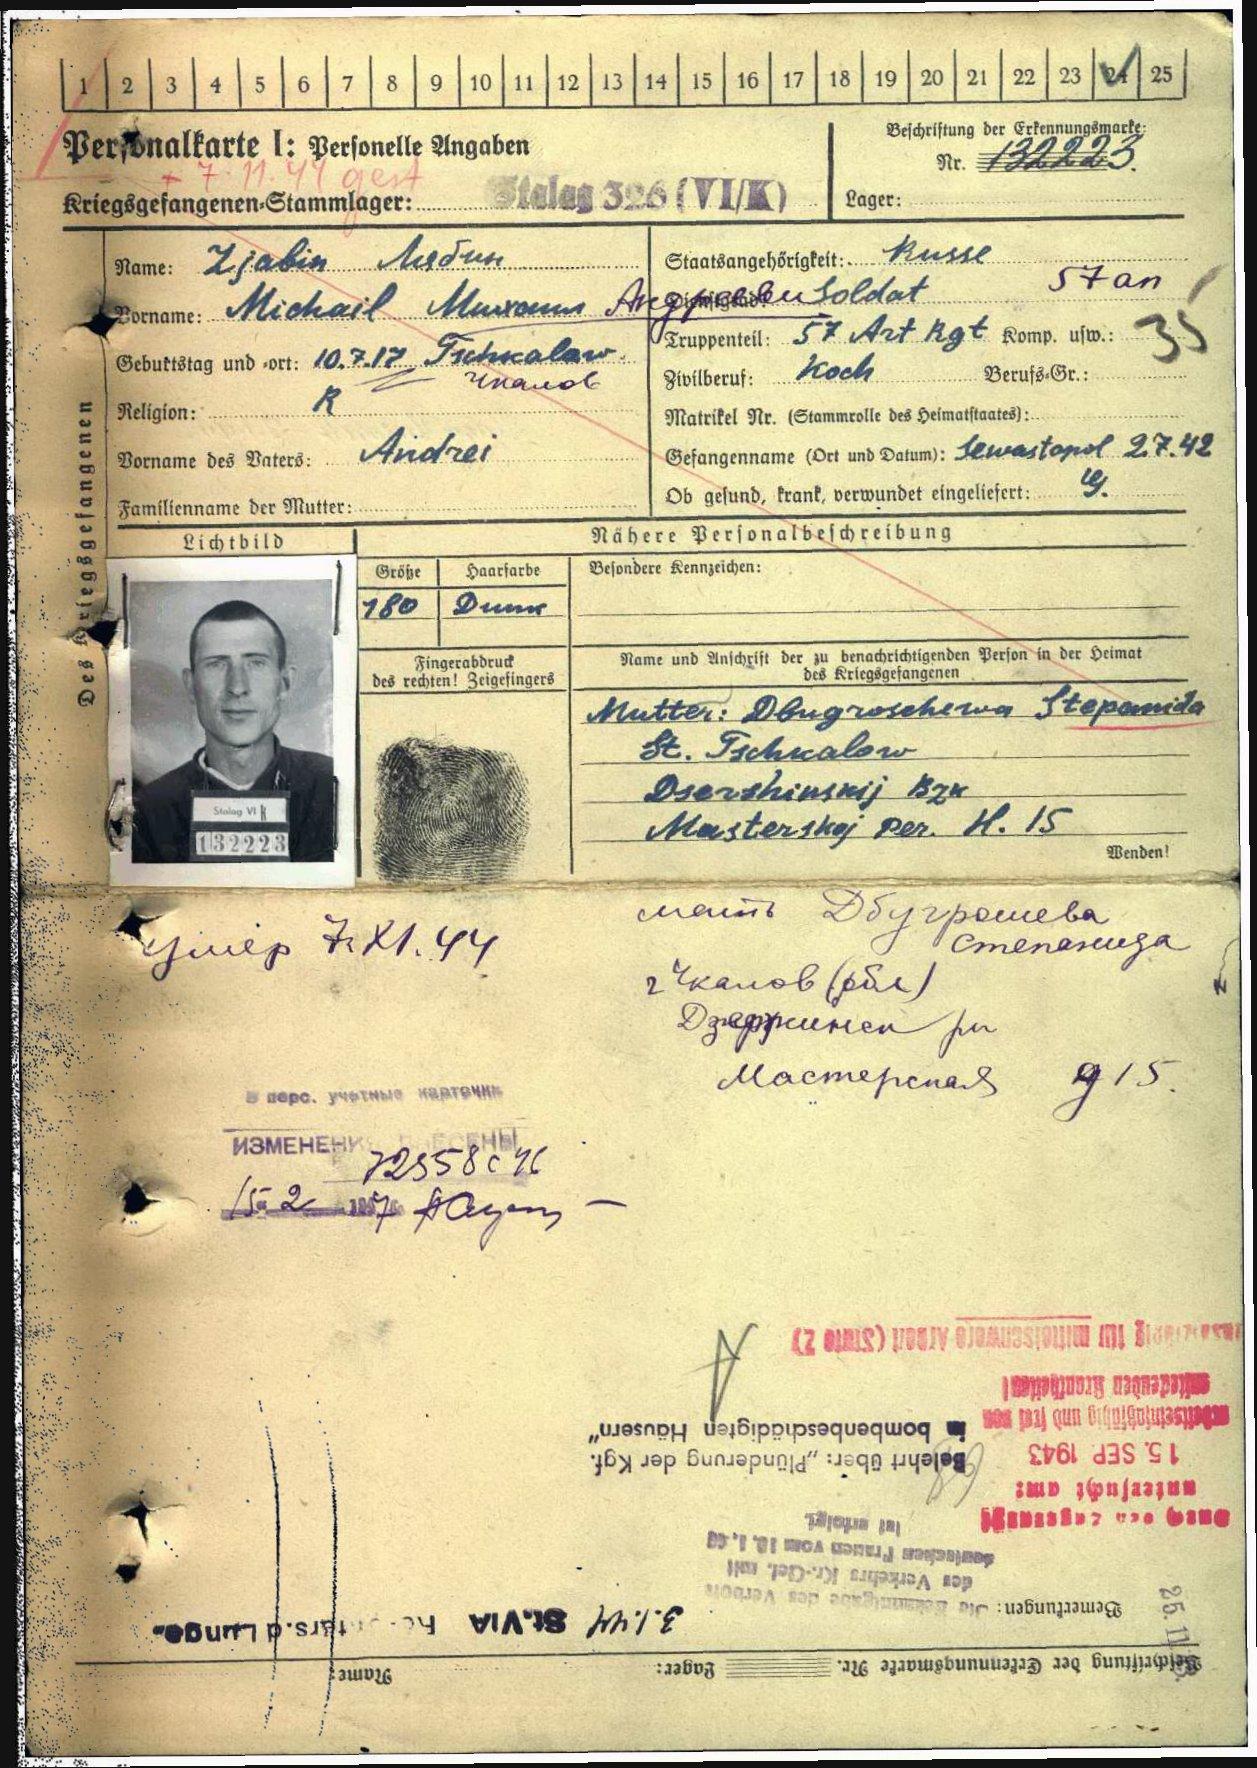 1 2 3 4 5 6 7 8 9 10 11 12 13 14 15 16 17 18 19 20 21 22 23 24 25
Personalkarte I: Personelle Angaben
Beschriftung der Erkennungsmarke:
Nr. 132223.
+ 7.11.44 gest
Kriegsgefangenen-Stammlager: Stalag 326 (VI/K)
Lager:
Des Kriegsgefangenen
Name: Zjabin Лябин
Vorname: Michail Михаил Андрееви
Geburtstag und -ort: 10.7.17 Tschkalow.
Чкалов
Religion: R
Vorname des Vaters: Andrei
Familienname der Mutter:
Staatsangehörigkeit: Russe
Dienstgrad: Soldat 57 ап
Truppenteil: 57 Art Rgt Komp. usw.: 35
Zivilberuf: Koch Berufs-Gr.:
Matrikel Nr. (Stammrolle des Heimatstaates):
Gefangenname (Ort und Datum): Sewastopol 2.7.42
Ob gesund, krank, verwundet eingeliefert: g.
Lichtbild
Nähere Personalbeschreibung
Größe Haarfarbe Besondere Kennzeichen:
180
Fingerabdruck
des rechten! Zeigefingers
Name und Anschrift der zu benachrichtigenden Person in der Heimat
des Kriegsgefangenen
Mutter: Dbugroschewa Stepanida
St. Tschkalow
Dsershinskij Bzk
Masterskoj per. H. 15
Stalag VI K
132223
Wenden!
умер 7.XI.44
мать Дбугрошева
Степанида
г Чкалов (обл)
Дзержинск рн
Мастерская д 15.
В перс. учетные карточки
ИЗМЕНЕНИЯ ВНЕСЕНЫ
72558с46
15 2
für mittelschwere Arbeit (Stufe 2)
ansteckenden Krankheiten!
arbeitseinsatzfähig und frei von
15. SEP 1943
untersucht am:
Durch den Lagerarzt
in bombenbeschädigten Häusern"
Belehrt über: „Plünderung der Kgf.
ist erfolgt.
deutschen Frauen vom
des Verkehrs Kr.-Gef. mit
Die Bekanntgabe des Verbots
Bemerkungen:
25.11.
3.1.44 St. VIA Rö. d. Lunge.
Beschriftung der Erkennungsmarke Nr. Lager: Name: